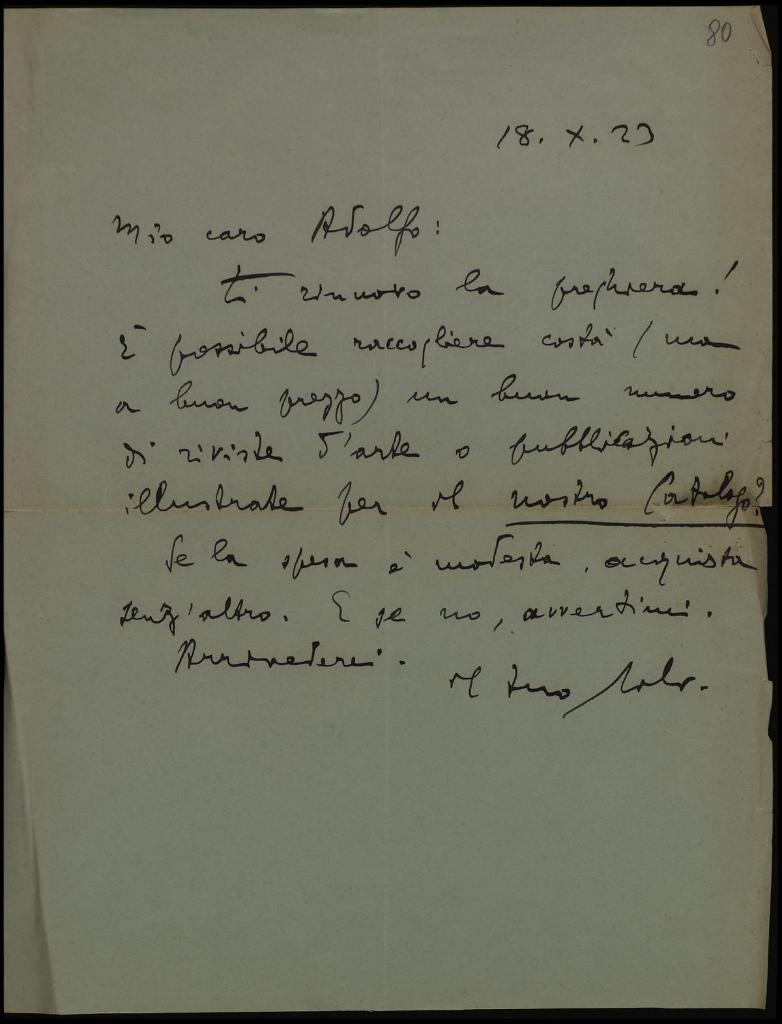 80
18. X. 23
Mio caro Adolfo:
ti rinnovo la preghiera!
È possibile raccogliere costà (ma
a buon prezzo) un buon numero
di riviste d'arte o pubblicazioni
illustrate per il nostro Catalogo?
Se la spesa è modesta, acquista
senz'altro. E se no, avvertimi.
Arrivederci.
il tuo